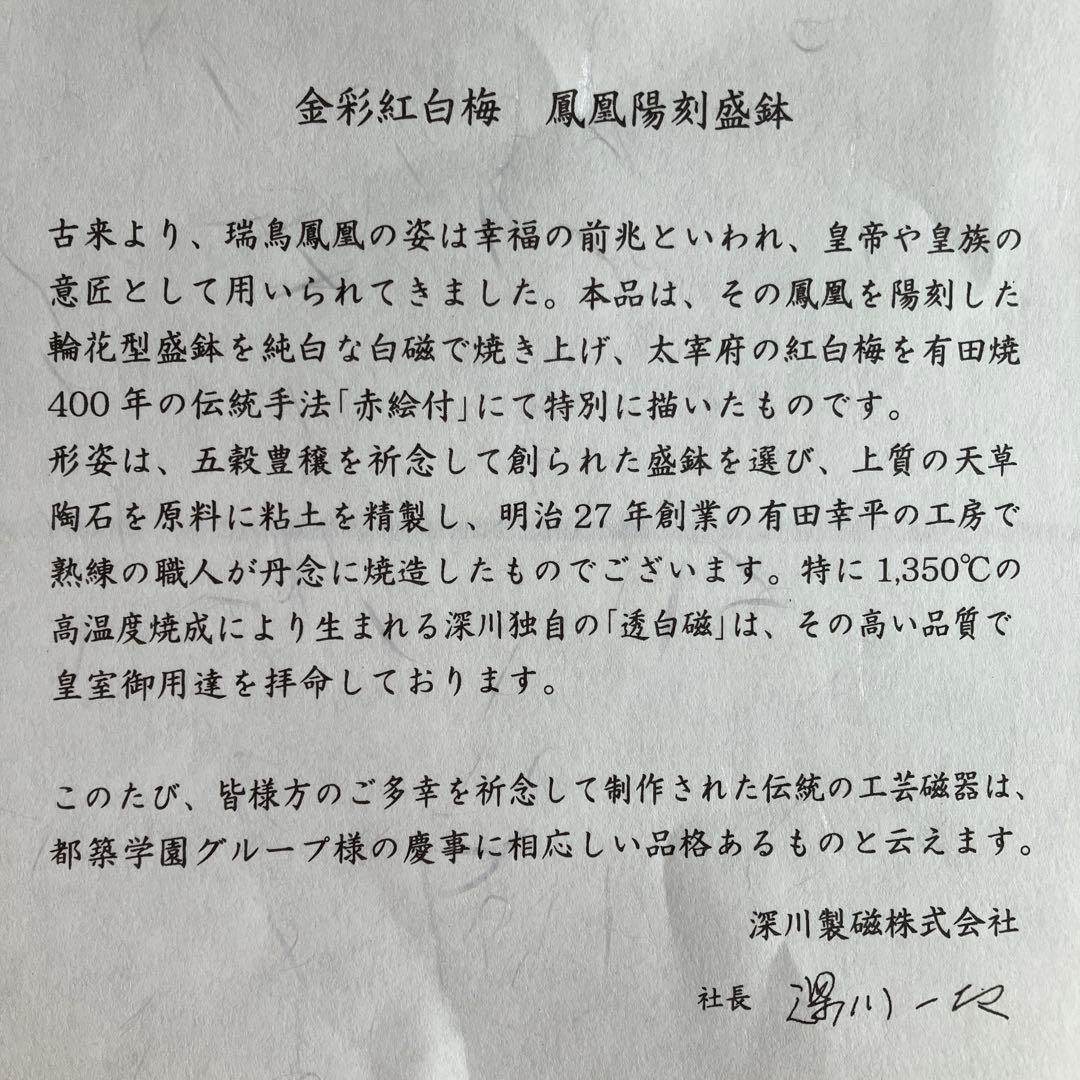 金彩紅白梅　鳳凰陽刻盛鉢
古来より、瑞鳥鳳凰の姿は幸福の前兆といわれ、皇帝や皇族の
意匠として用いられてきました。本品は、その鳳凰を陽刻した
輪花型盛鉢を純白な白磁で焼き上げ、太宰府の紅白梅を有田焼
400年の伝統手法「赤絵付」にて特別に描いたものです。
形姿は、五穀豊穣を祈念して創られた盛鉢を選び、上質の天草
陶石を原料に粘土を精製し、明治27年創業の有田幸平の工房で
熟練の職人が丹念に焼造したものでございます。特に1,350℃の
高温度焼成により生まれる深川独自の「透白磁」は、その高い品質で
皇室御用達を拝命しております。
このたび、皆様方のご多幸を祈念して制作された伝統の工芸磁器は、
都築学園グループ様の慶事に相応しい品格あるものと云えます。
深川製磁株式会社
社長　深川一